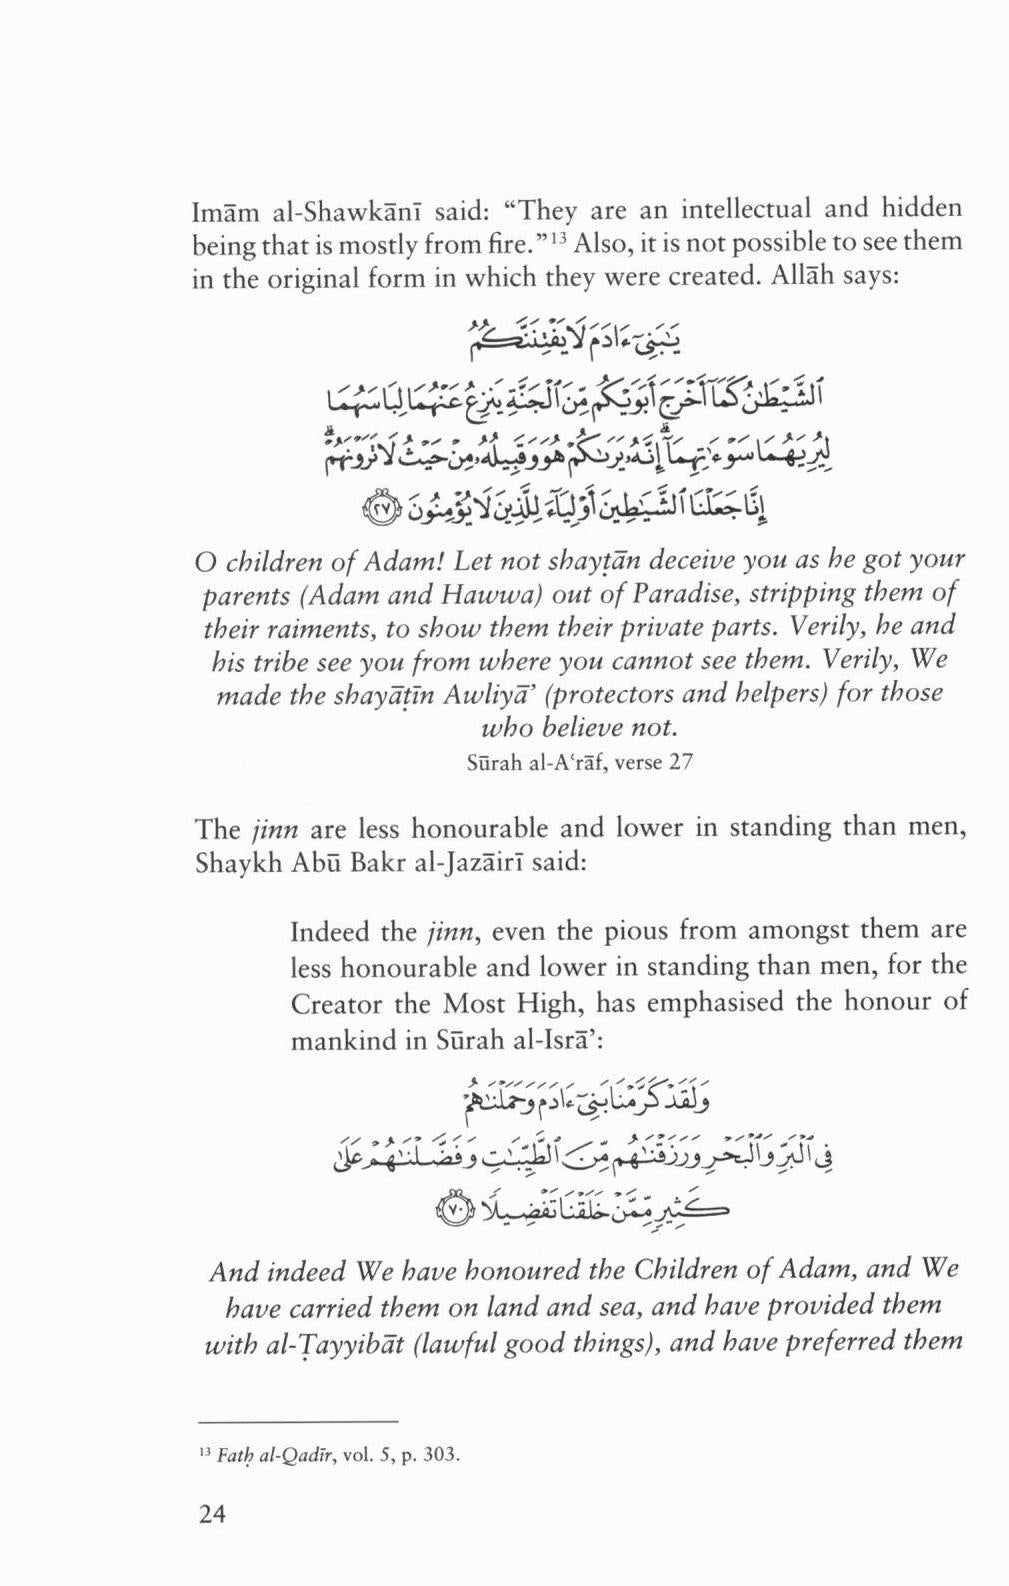 Imām al-Shawkānī said: “They are an intellectual and hidden
being that is mostly from fire.”¹³ Also, it is not possible to see them
in the original form in which they were created. Allāh says:
يَـٰبَنِىٓ ءَادَمَ لَا يَفْتِنَنَّكُمُ
ٱلشَّيْطَـٰنُ كَمَآ أَخْرَجَ أَبَوَيْكُم مِّنَ ٱلْجَنَّةِ يَنزِعُ عَنْهُمَا لِبَاسَهُمَا
لِيُرِيَهُمَا سَوْءَٰتِهِمَآ ۗ إِنَّهُۥ يَرَىٰكُمْ هُوَ وَقَبِيلُهُۥ مِنْ حَيْثُ لَا تَرَوْنَهُمْ ۗ
إِنَّا جَعَلْنَا ٱلشَّيَـٰطِينَ أَوْلِيَآءَ لِلَّذِينَ لَا يُؤْمِنُونَ ﴿٢٧﴾
O children of Adam! Let not shayṭān deceive you as he got your
parents (Adam and Hawwa) out of Paradise, stripping them of
their raiments, to show them their private parts. Verily, he and
his tribe see you from where you cannot see them. Verily, We
made the shayāṭīn Awliyā’ (protectors and helpers) for those
who believe not.
Sūrah al-A‘rāf, verse 27
The jinn are less honourable and lower in standing than men,
Shaykh Abū Bakr al-Jazāirī said:
Indeed the jinn, even the pious from amongst them are
less honourable and lower in standing than men, for the
Creator the Most High, has emphasised the honour of
mankind in Sūrah al-Isrā’:
وَلَقَدْ كَرَّمْنَا بَنِىٓ ءَادَمَ وَحَمَلْنَـٰهُمْ
فِى ٱلْبَرِّ وَٱلْبَحْرِ وَرَزَقْنَـٰهُم مِّنَ ٱلطَّيِّبَـٰتِ وَفَضَّلْنَـٰهُمْ عَلَىٰ
كَثِيرٍ مِّمَّنْ خَلَقْنَا تَفْضِيلًا ﴿٧٠﴾
And indeed We have honoured the Children of Adam, and We
have carried them on land and sea, and have provided them
with al-Ṭayyibāt (lawful good things), and have preferred them
¹³ Fatḥ al-Qadīr, vol. 5, p. 303.
24